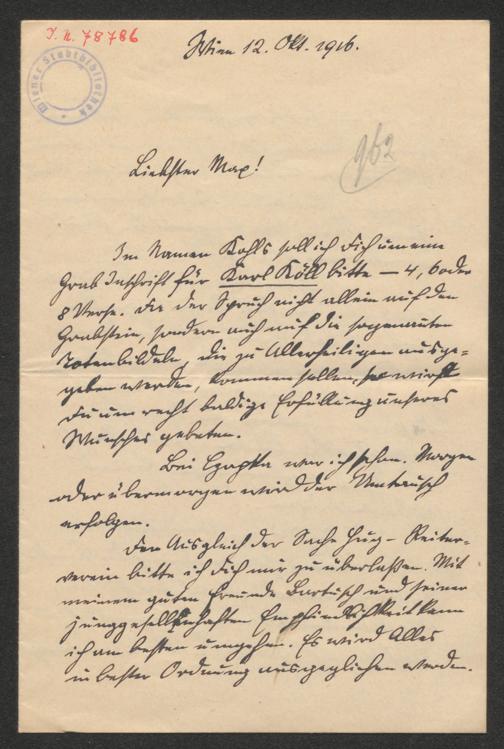 I. N. 78786
Wiener Stadtbibliothek
Wien 12. Okt. 1916.
962
Liebster Max!
Im Namen Kohls soll ich Dich um eine
Grab Inschrift für Karl Köll bitte – 4, 6 oder
8 Verse. Da der Spruch nicht allein auf den
Grabstein, sondern auch auf die sogenannten
Totenbildeln, die zu Allerheiligen ausge-
geben werden, kommen sollen, so wirst
Du um recht baldige Erfüllung unseres
Wunsches gebeten.
Bei war ich schon. Morgen
oder übermorgen wird der Umtausch
erfolgen.
Den Ausgleich der Sache Hug – Reiter-
verein bitte ich Dich mir zu überlaßen. Mit
meinem guten Freunde Bartusch und seiner
junggesellenhaften Empfindlichkeit kann
ich am besten umgehen. Es wird Alles
in bester Ordnung ausgeglichen werden.